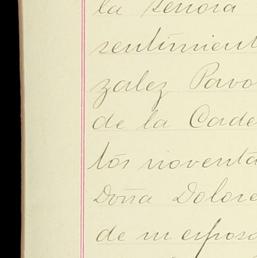 la señora
sentimient
zalez Pavo
de la Cade
tos noventa
Doña Dolore
de mi esposo